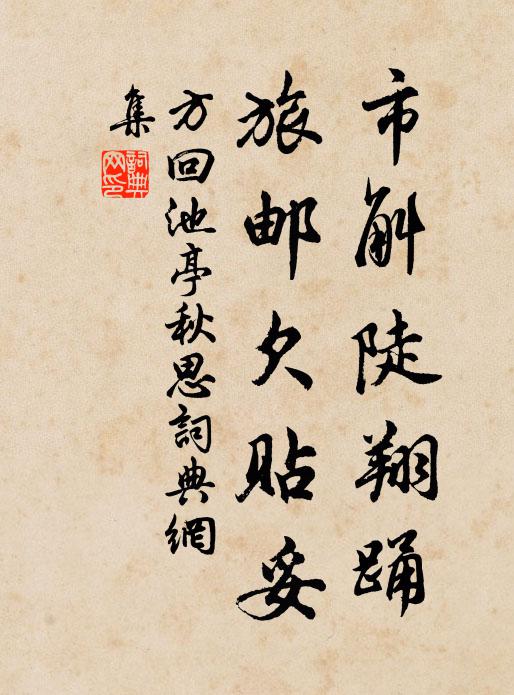 市斛陡翔踊
旅邮欠贴妥
方回池亭秋思詞典網
集
詞典网印